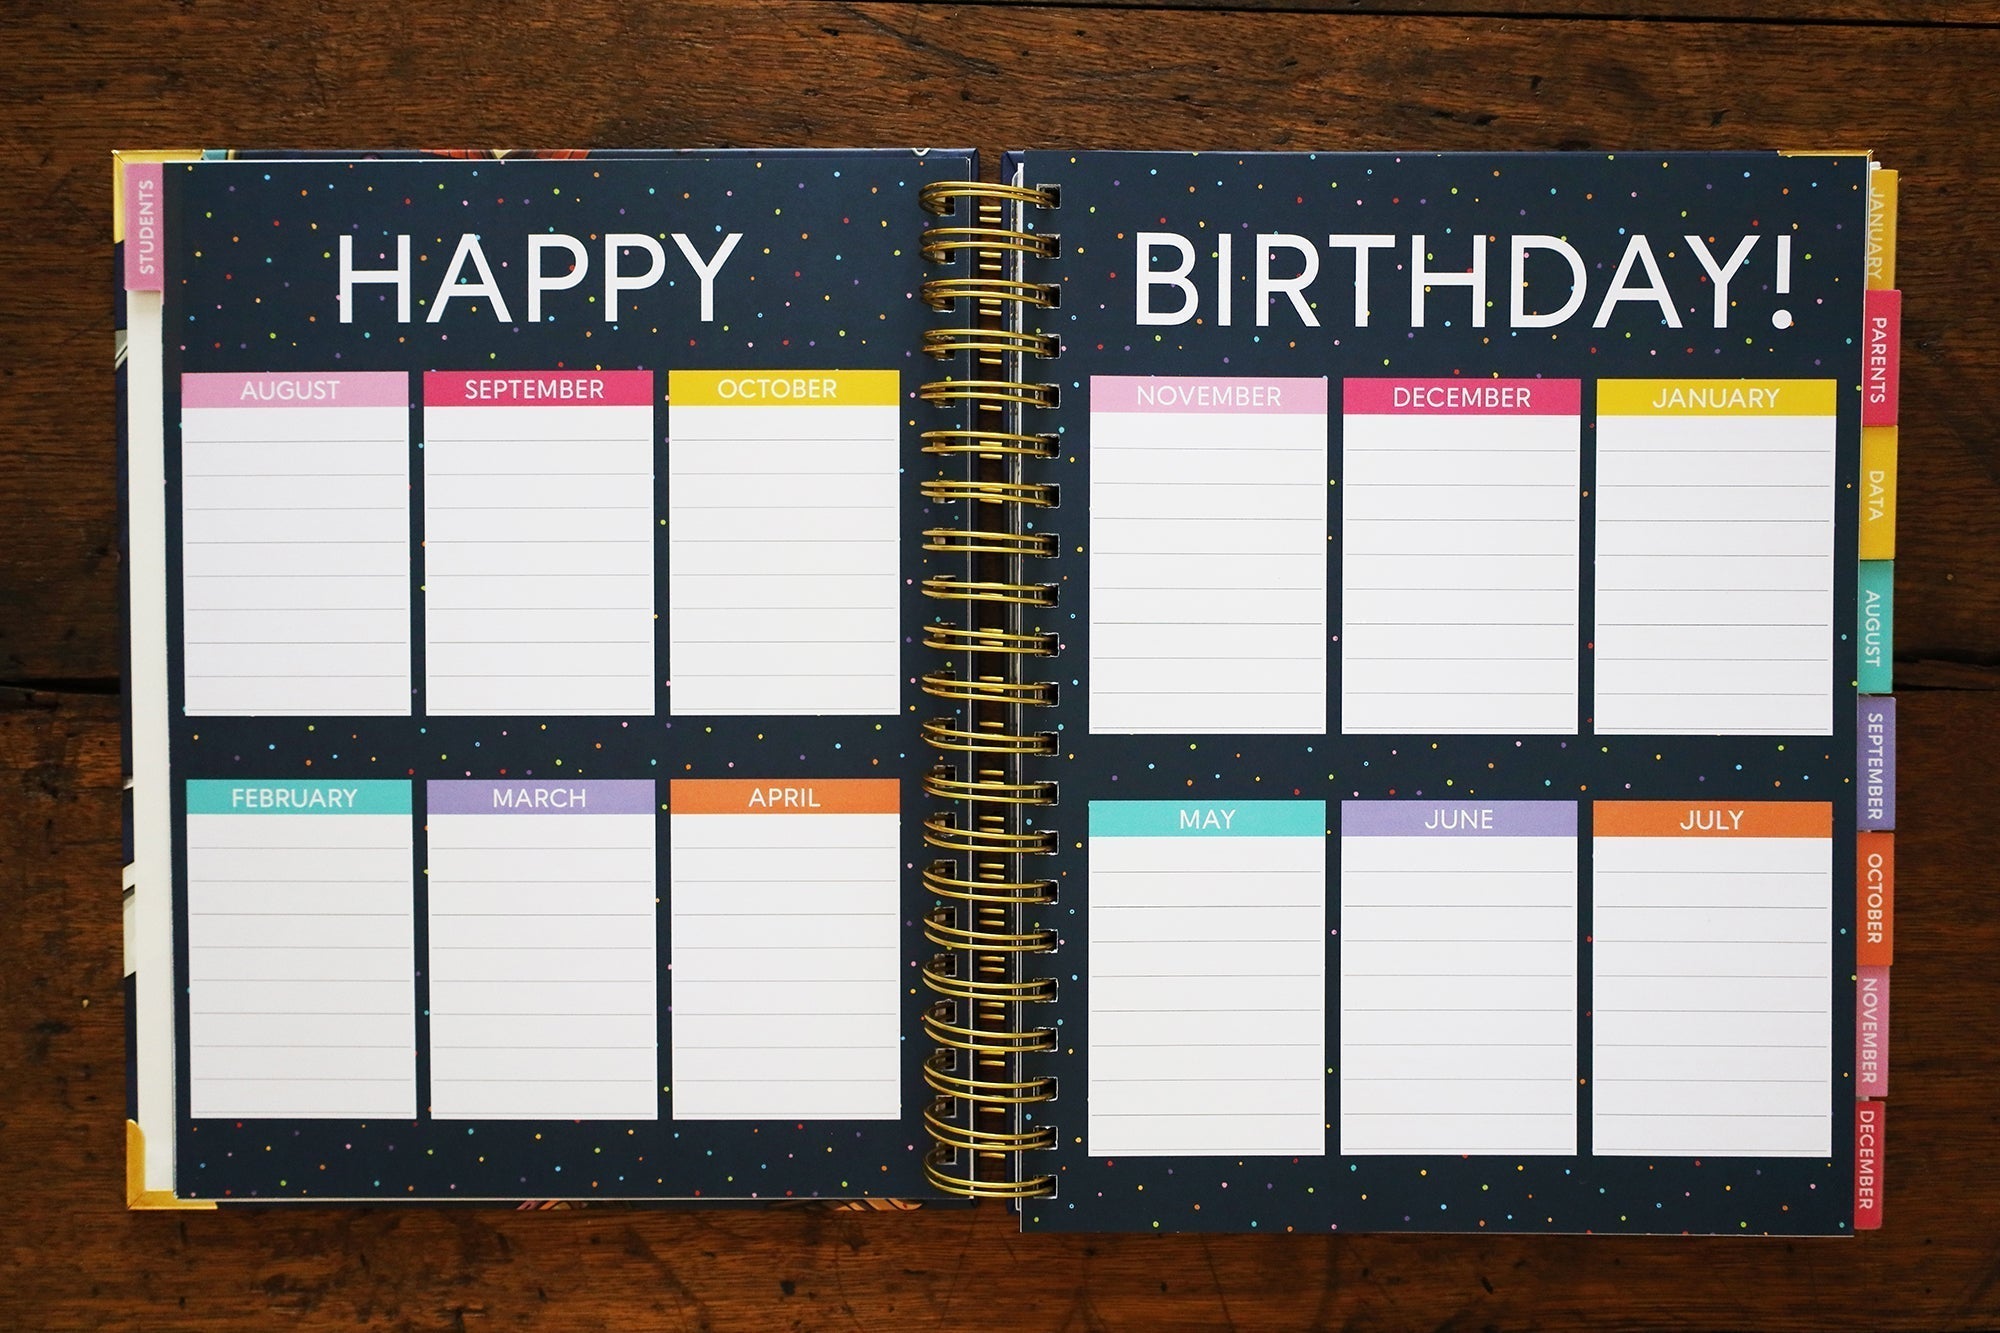 STUDENTS
HAPPY
AUGUST
SEPTEMBER
OCTOBER
FEBRUARY
MARCH
APRIL
BIRTHDAY!
NOVEMBER
DECEMBER
JANUARY
MAY
JUNE
JULY
JANUARY
PARENTS
DATA
AUGUST
SEPTEMBER
OCTOBER
NOVEMBER
DECEMBER